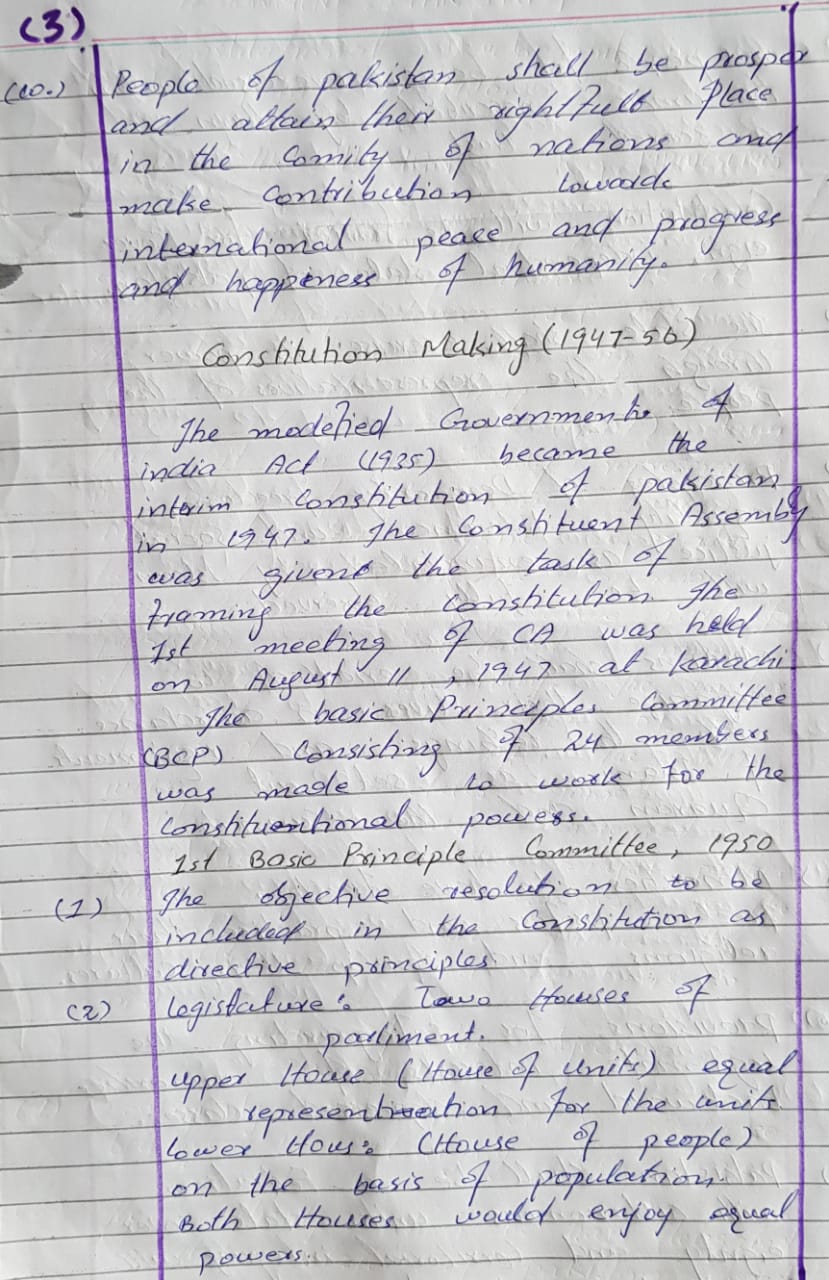 (3)
(10.) People of pakistan shall be prosper
and attain their rightfull Place
in the Comity of nations and
make Contribution towards
international peace and progress
and happeness of humanity.
Constitution Making (1947-56)
The modefied Government of
india Act (1935) became the
interim Constitution of pakistan
in 1947. The Constituent Assembly
was given the task of
framing the Constitution The
1st meeting of CA was held
on August 11, 1947 at Karachi
The basic Principles Committee
(BCP) Consisting of 24 members
was made to work for the
Constituentional powers.
1st Basic Principle Committee, 1950
(1) The objective resolution to be
included in the Constitution as
directive principles.
(2) Legislature: Two Houses of
parliment.
upper House (House of Units) equal
representation for the units
lower House (House of people)
on the basis of population.
Both Houses would enjoy equal
powers.